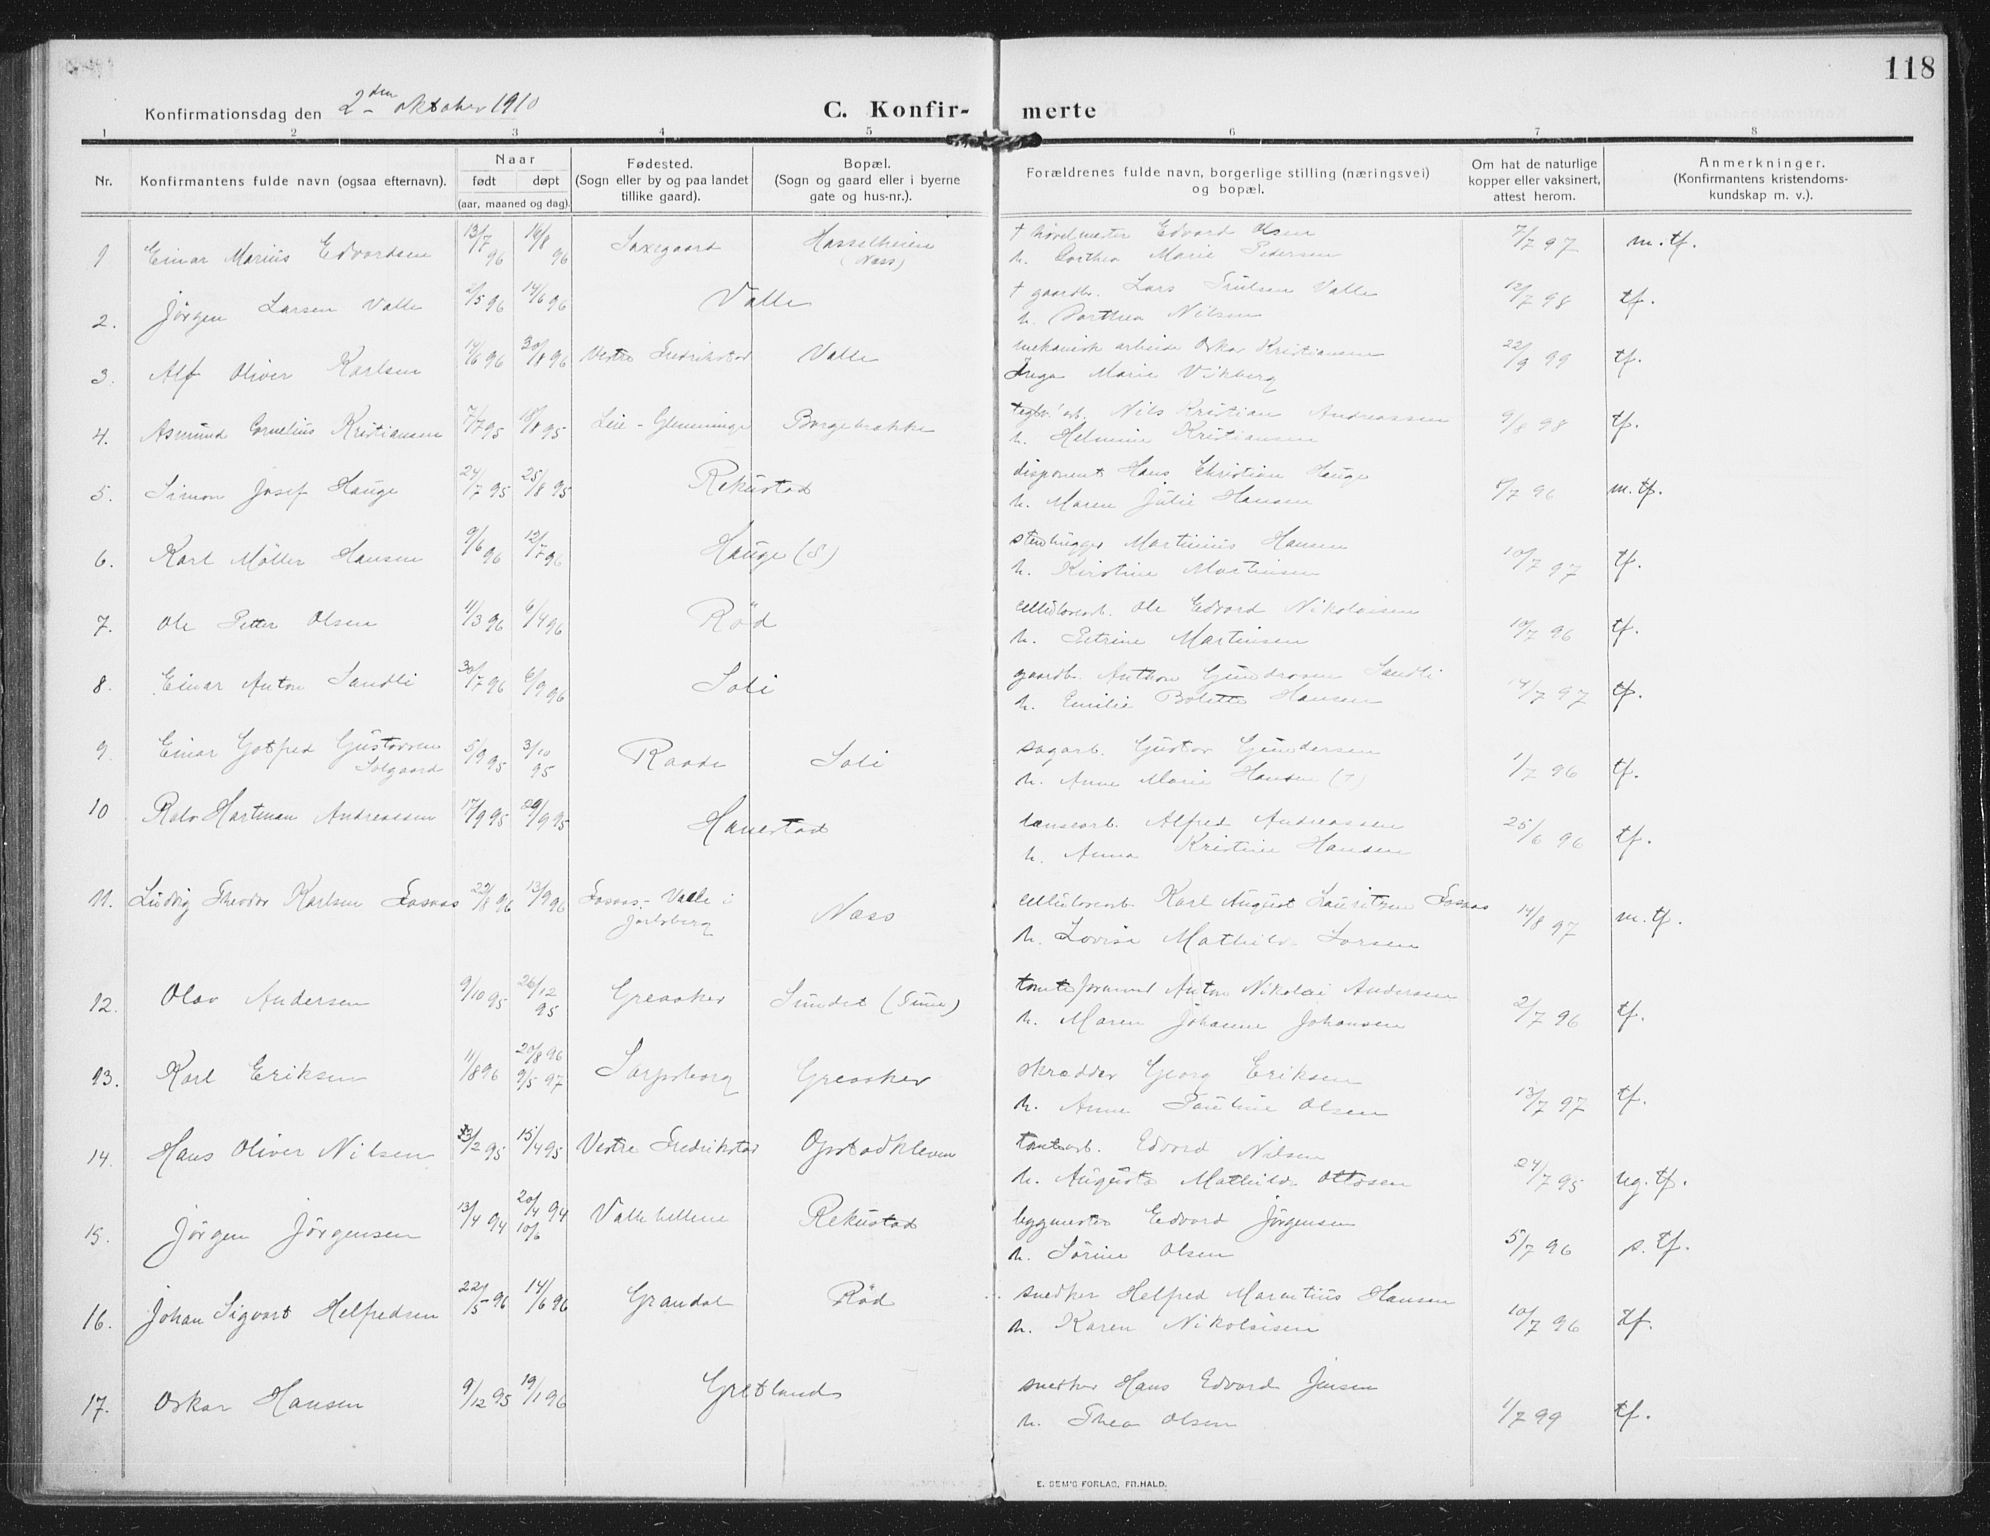 118
Konfirmationsdag den 2den oktober 1910
C. Konfirmerte
1 2 3 4 5 6 7 8
Nr. Konfirmantens fulde navn (ogsaa efternavn). Naar født døpt (aar, maaned og dag). Fødested. (Sogn eller by og paa landet tillike gaard). Bopæl. (Sogn og gaard eller i byerne gate og hus-nr.). Forældrenes fulde navn, borgerlige stilling (næringsvei) og bopæl. Om hat de naturlige kopper eller vaksinert, attest herom. Anmerkninger. (Konfirmantens kristendomskundskap m. v.).
1 Einar Marius Edvardsen 13/7 96 16/8 96 Saxegaard Hasselheien (Næss) † høvelmester Edvard Olsen 7/7 97 m. tf.
h. Dorthea Marie Pedersen
2. Jörgen Larsen Valle 2/5 96 14/6 96 Valle † gaardb. Lars Trulsen Valle 12/7 98 tf.
h. Dorthea Nilsen
3. Alf Oliver Karlsen 17/6 96 30/8 96 Vestre Fredrikstad Valle mekanisk arbeide Oskar Kristiansen 22/9 99 tf.
Inga Marie Vikberg
4. Asmund Cornelius Kristiansen 7/7 95 18/8 95 Lie - Glemminge Borgebakke teglv. arb. Nils Kristian Andreassen 9/8 98 tf.
h. Helmine Kristiansen
5. Simon Josef Hauge 24/7 95 25/8 95 Rekustad disponent Hans Christian Hauge 8/7 96 m. tf.
h. Maren Julie Hansen
6. Karl Möller Hansen 9/6 96 12/7 96 Hauge (S) stenhugger Martinius Hansen 10/7 97 tf.
h. Kirstine Martinsen
7. Ole Petter Olsen 11/3 96 6/4 96 Röd cellulosearb. Ole Edvard Nikolaisen 10/7 96 tf.
h. Petrine Martinsen
8. Einar Anton Sandli 30/7 96 6/9 96 Soli gaardb. Anthon Gundersen Sandli 14/7 97 tf.
h. Emilie Bolette Hansen
9. Einar Gotfred Gustavsen Solgaard 5/9 95 3/10 95 Raade Soli sagarb. Gustav Gundersen 1/7 96 tf.
h. Anne Marie Hansen (?)
10 Rolv Hartman Andreassen 17/9 95 29/9 95 Hanestad lænsearb. Alfred Andreassen 25/6 96 tf.
h. Anna Kristine Hansen
11. Ludvig Theodor Karlsen Fosaas 22/8 96 13/9 96 Fosaas - Valle i Jarlsberg Næss cellulosearb. Karl August Lauritzen Fosaas 14/8 97 m. tf.
h. Lovise Mathilde Larsen
12. Olav Andersen 9/10 95 26/12 95 Greaaker Sundet (Tune) tomteformand Anton Nikolai Andersen 2/7 96 tf.
h. Maren Johanne Johansen
13. Karl Eriksen 11/8 96 20/8 96 9/5 97 Sarpsborg Greaaker skrædder Georg Eriksen 13/7 97 tf.
h. Anne Pauline Olsen
14. Hans Oliver Nilsen 23/2 95 15/4 95 Vestre Fredrikstad Opstadkleven tomtearb. Edvard Nilsen 24/7 95 ug. tf.
h. Augusta Mathilde Ottosen
15. Jörgen Jörgensen 13/4 94 20/4 94 10/6 Vallehellene Rekustad bygmester Edvard Jörgensen 5/7 96 s. tf.
h. Sörine Olsen
16. Johan Sigvart Helfredsen 22/5 96 14/6 96 Grandal Röd snedker Helfred Marentius Hansen 10/7 96 tf.
h. Karen Nikolaisen
17. Oskar Hansen 9/12 95 19/1 96 Gretland snedker Hans Edvard Jensen 1/7 99 tf.
h. Thea Olsen
E. SEM'S FORLAG, FR.HALD.